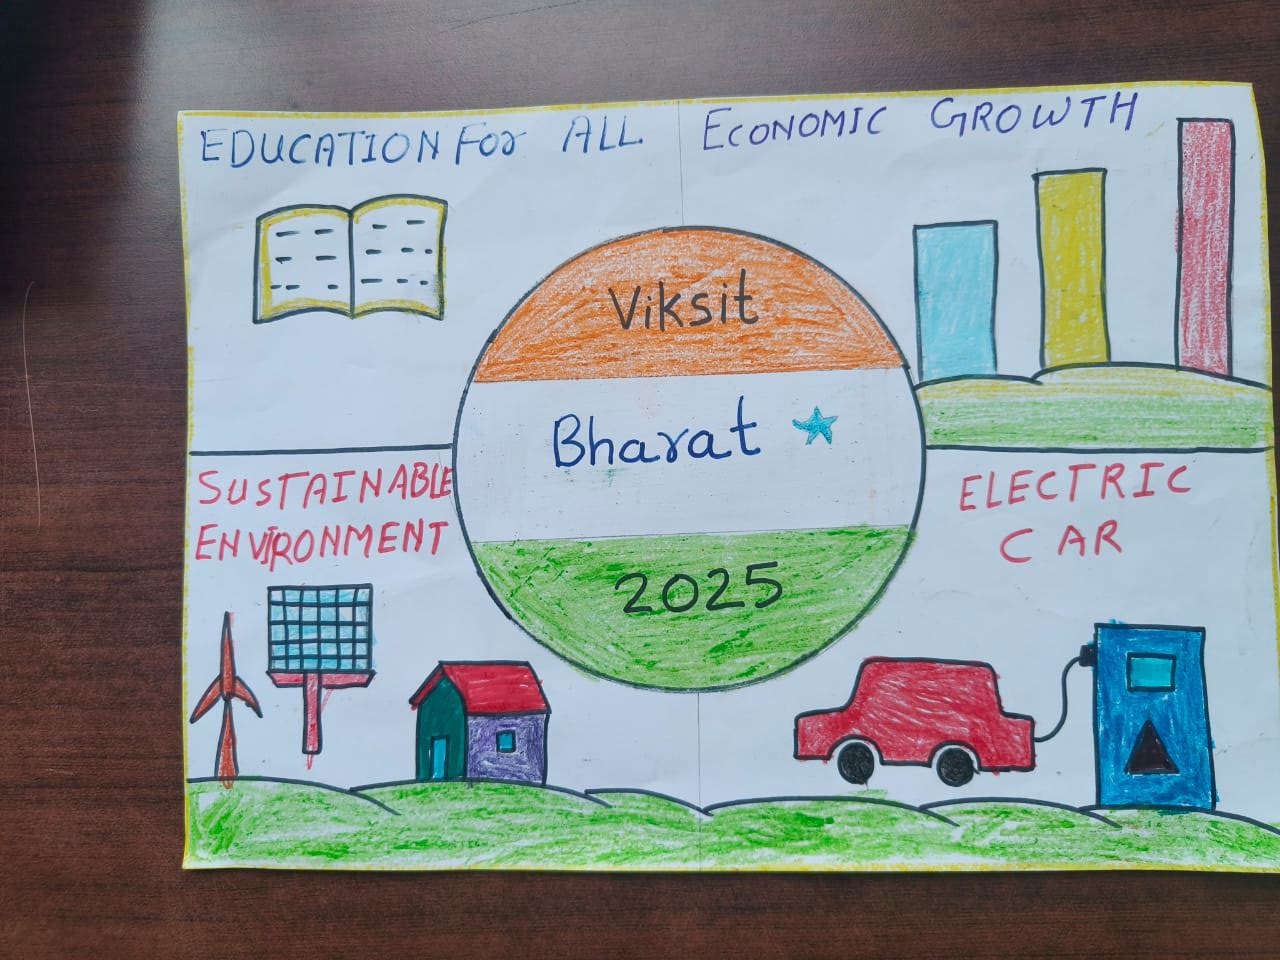 EDUCATION FOr ALL
ECONOMIC GROWTH
Viksit
Bharat
2025
SUSTAINABLE
ENVIRONMENT
ELECTRIC
CAR